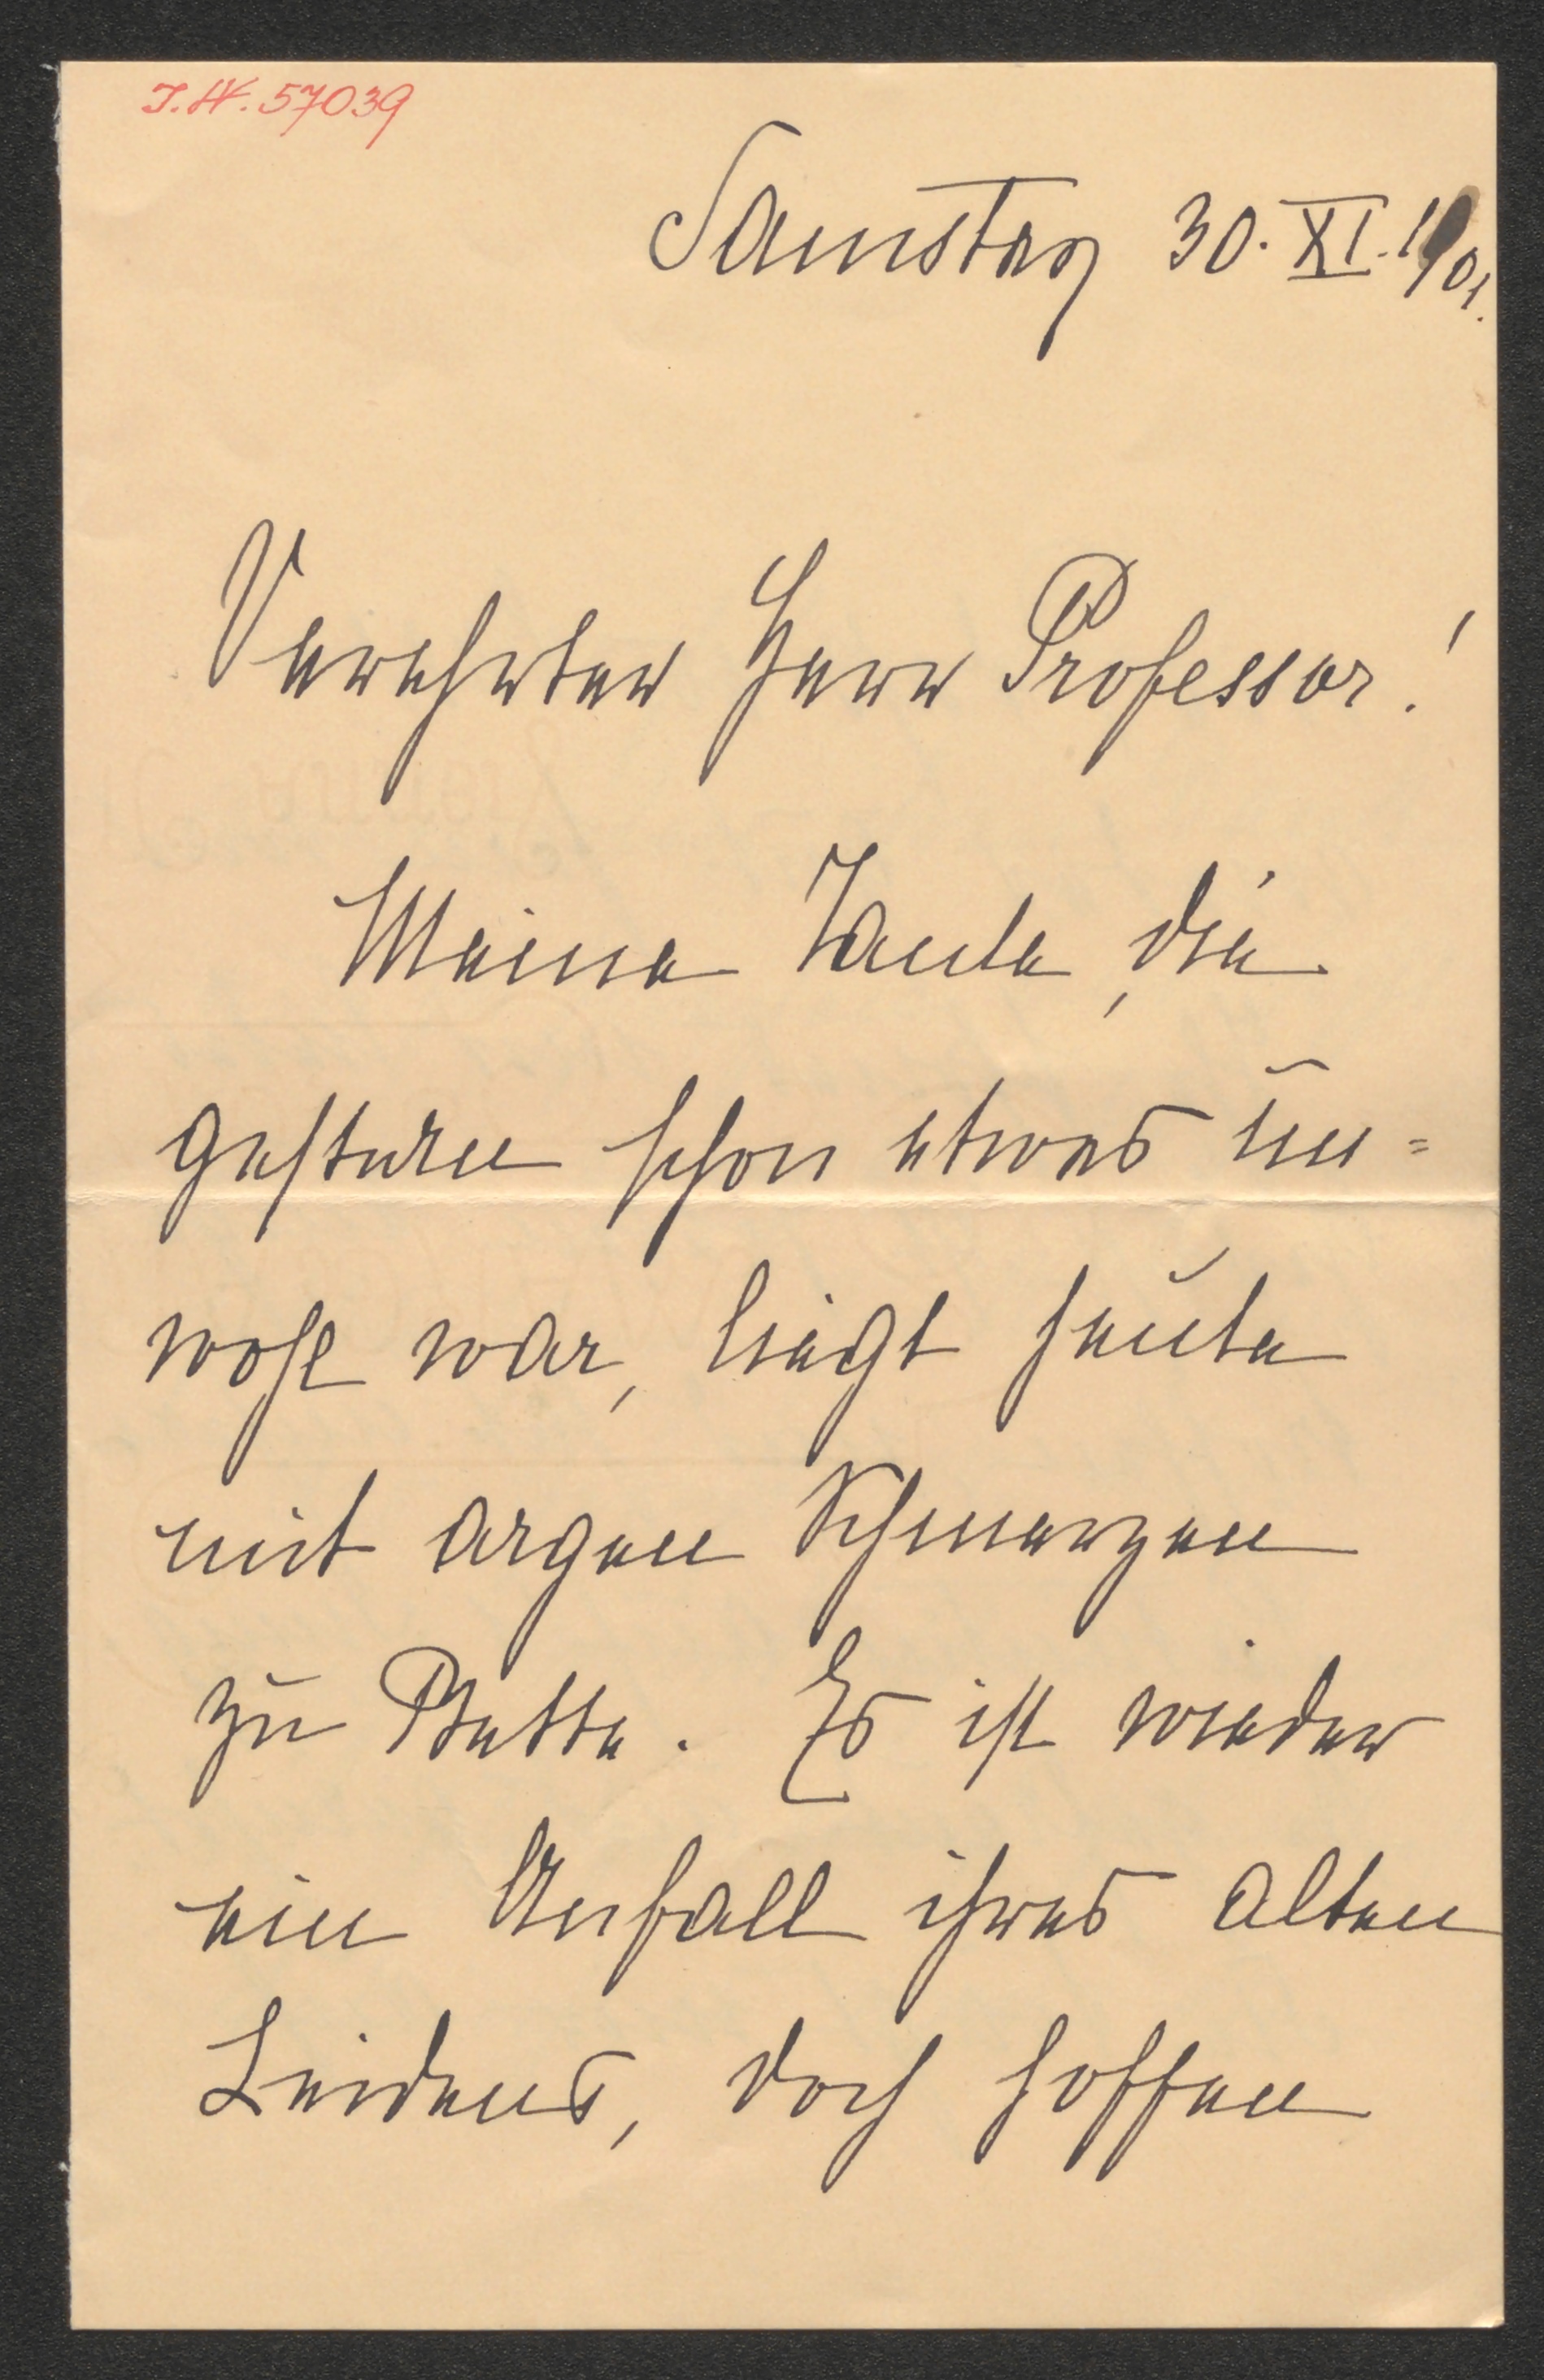 J.N. 57039
Samstag 30. XI. 1901.
Verehrter Herr Professor!
Meine Tante, die
gestern schon etwas un=
wohl war, liegt heute
mit argen Schmerzen
zu Bette. Es ist wieder
ein Anfall ihres alten
Leidens, doch hoffen